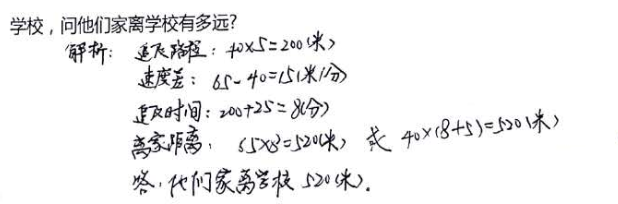 学校，问他们家离学校有多远?
解析： 追及路程：40×5=200(米)
速度差：65-40=25(米/分)
追及时间：200÷25=8(分)
离家距离：65×8=520(米) 或 40×(8+5)=520(米)
答：他们家离学校520(米).